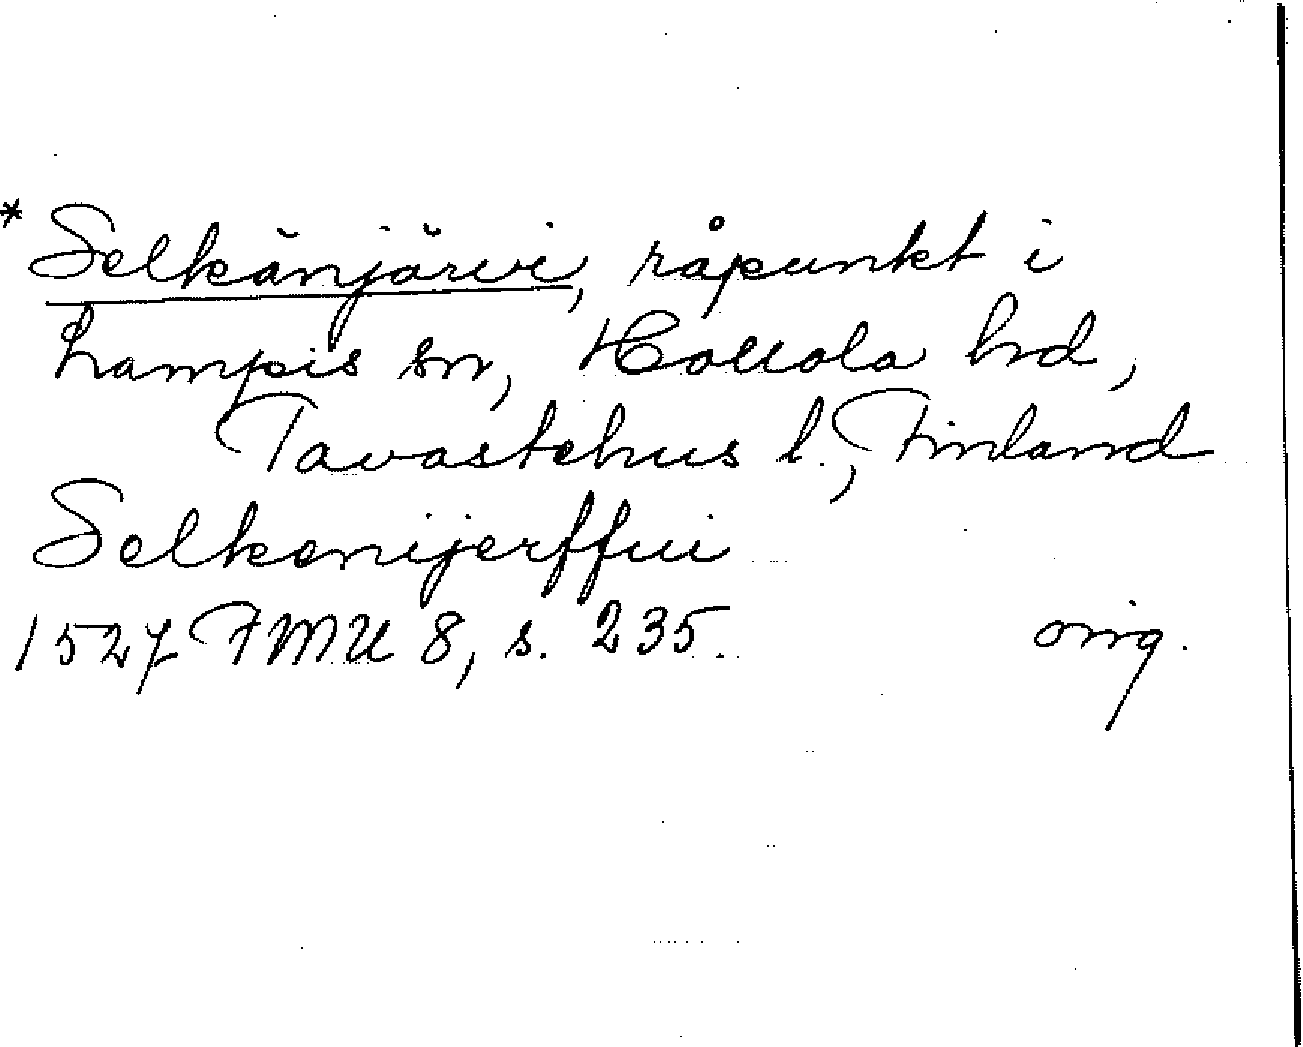 * Selkänjärvi, råpunkt i
Lampis sn, Hollola hd,
Tavastehus l., Finland
Selkenijerffui
1527 FMU 8, s. 235. orig.